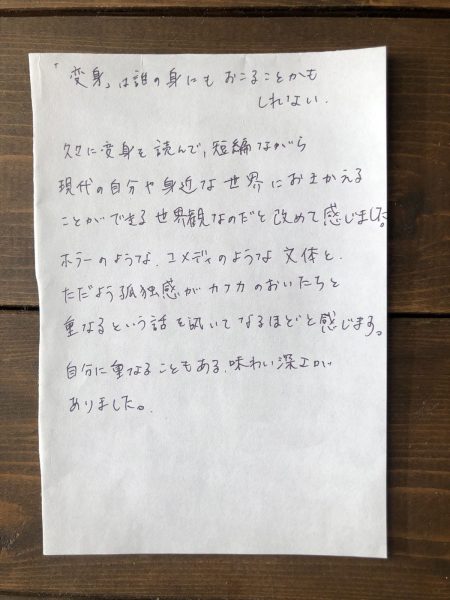 「変身」は誰の身にもおこることかも
しれない.
久々に変身を読んで、短編ながら
現代の自分や身近な世界におきかえる
ことができる世界観なのだと改めて感じました。
ホラーのような、コメディのような文体と、
ただよう孤独感がカフカのおいたちと
重なるという話を訊いてなるほどと感じます。
自分に重なることもある、味わい深さが
ありました。